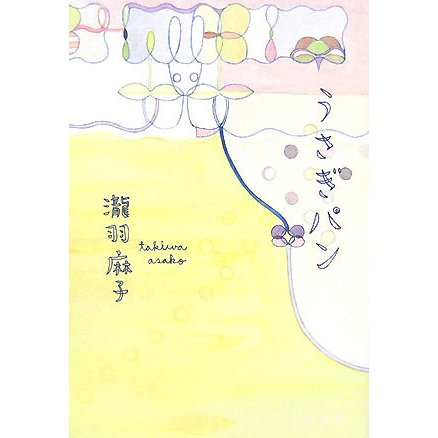 うさぎパン
瀧羽麻子
takiwa
asako